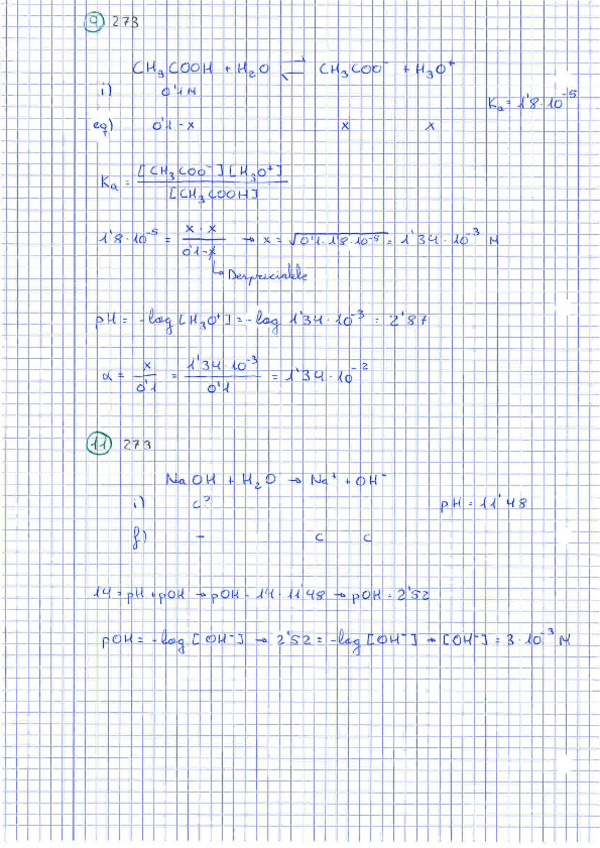 9 273
CH₃COOH + H₂O ⇌ CH₃COO⁻ + H₃O⁺
i) 0'1M
Ka = 1'8·10⁻⁵
eq) 0'1-x x x
Ka = [CH₃COO⁻][H₃O⁺] / [CH₃COOH]
1'8·10⁻⁵ = x·x / 0'1-x → x = √0'1·1'8·10⁻⁵ = 1'34·10⁻³ M
↳ Despreciable
pH = -log [H₃O⁺] = -log 1'34·10⁻³ = 2'87
α = x / 0'1 = 1'34·10⁻³ / 0'1 = 1'34·10⁻²
11 273
NaOH + H₂O → Na⁺ + OH⁻
i) c? pH = 11'48
f) - c c
14 = pH + pOH → pOH = 14 - 11'48 → pOH = 2'52
pOH = -log [OH⁻] → 2'52 = -log [OH⁻] → [OH⁻] = 3·10⁻³ M